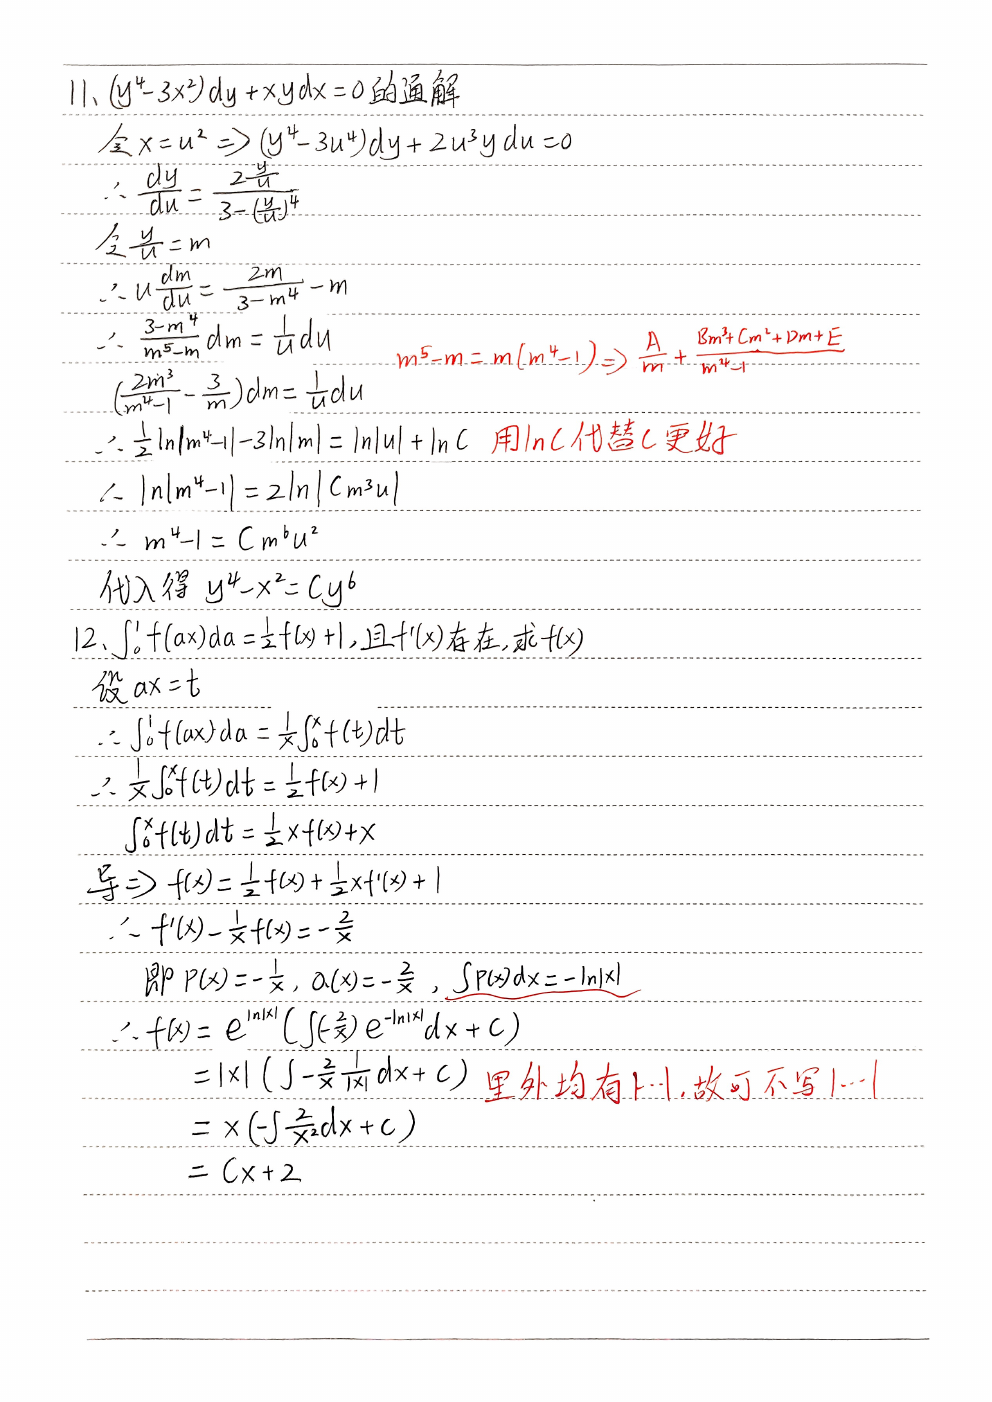 11、(y⁴-3x²)dy+xydx=0的通解
令x=u² ⇒ (y⁴-3u⁴)dy+2u³ydu=0
∴ dy/du = (2 y/u)/(3-(y/u)⁴)
令 y/u = m
∴ u dm/du = 2m/(3-m⁴) - m
∴ (3-m⁴)/(m⁵-m) dm = 1/u du
m⁵-m = m(m⁴-1) ⇒ A/m + (Bm³+Cm²+Dm+E)/(m⁴-1)
(2m³/(m⁴-1) - 3/m)dm = 1/u du
∴ 1/2 ln|m⁴-1| - 3ln|m| = ln|u| + lnC 用lnC代替C更好
∴ ln|m⁴-1| = 2ln|Cm³u|
∴ m⁴-1 = Cm⁶u²
代入得 y⁴-x² = Cy⁶
12、∫₀¹f(ax)da = 1/2 f(x)+1,且f'(x)存在,求f(x)
设ax=t
∴ ∫₀¹f(ax)da = 1/x ∫₀ˣf(t)dt
∴ 1/x ∫₀ˣf(t)dt = 1/2 f(x)+1
∫₀ˣf(t)dt = 1/2 xf(x)+x
导⇒ f(x) = 1/2 f(x) + 1/2 xf'(x)+1
∴ f'(x) - 1/x f(x) = -2/x
即 P(x) = -1/x, Q(x) = -2/x, ∫P(x)dx = -ln|x|
∴ f(x) = e^(ln|x|) (∫(-2/x) e^(-ln|x|) dx + C)
= |x| (∫ -2/x 1/|x| dx + C) 里外均有|…|,故可不写|…|
= x(-∫ 2/x² dx + C)
= Cx+2